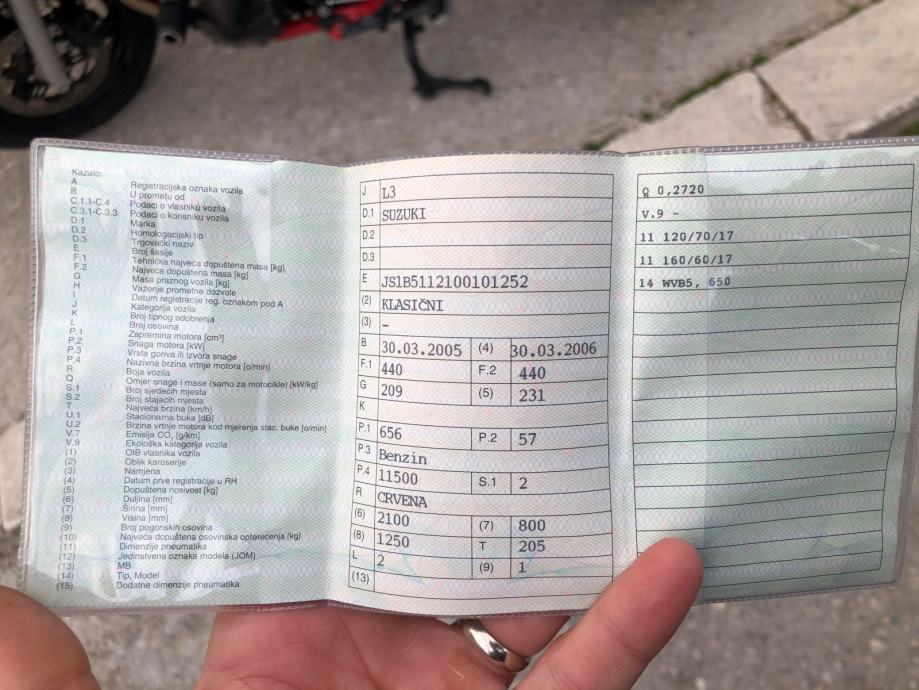 Kazalo:
A Registracijska oznaka vozila
B U prometu od
C.1.1-C.4 Podaci o vlasniku vozila
C.3.1-C.3.3 Podaci o korisniku vozila
D.1 Marka
D.2 Homologacijski tip
D.3 Trgovački naziv
E Broj šasije
F.1 Tehnička najveća dopuštena masa [kg]
F.2 Najveća dopuštena masa [kg]
G Masa praznog vozila [kg]
H Važenje prometne dozvole
I Datum registracije reg. oznakom pod A
J Kategorija vozila
K Broj tipnog odobrenja
L Broj osovina
P.1 Zapremina motora [cm³]
P.2 Snaga motora [kW]
P.3 Vrsta goriva ili izvora snage
P.4 Nazivna brzina vrtnje motora [o/min]
R Boja vozila
Q Omjer snage i mase (samo za motocikle) [kW/kg]
S.1 Broj sjedećih mjesta
S.2 Broj stajaćih mjesta
T Najveća brzina [km/h]
U.1 Stacionarna buka [dB]
U.2 Brzina vrtnje motora kod mjerenja stac. buke [o/min]
V.7 Emisija CO₂ [g/km]
V.9 Ekološka kategorija vozila
(1) OIB vlasnika vozila
(2) Oblik karoserije
(3) Namjena
(4) Datum prve registracije u RH
(5) Dopuštena nosivost [kg]
(6) Duljina [mm]
(7) Širina [mm]
(8) Visina [mm]
(9) Broj pogonskih osovina
(10) Najveća dopuštena osovinska opterećenja [kg]
(11) Dimenzije pneumatika
(12) Jedinstvena oznaka modela (JOM)
(13) MB
(14) Tip, Model
(15) Dodatne dimenzije pneumatika
J L3
D.1 SUZUKI
D.2
D.3
E JS1B5112100101252
(2) KLASIČNI
(3) -
B 30.03.2005 (4) 30.03.2006
F.1 440 F.2 440
G 209 (5) 231
K
P.1 656 P.2 57
P.3 Benzin
P.4 11500 S.1 2
R CRVENA
(6) 2100 (7) 800
(8) 1250 T 205
L 2 (9) 1
(13)
Q 0,2720
V.9 -
11 120/70/17
11 160/60/17
14 WVB5, 650